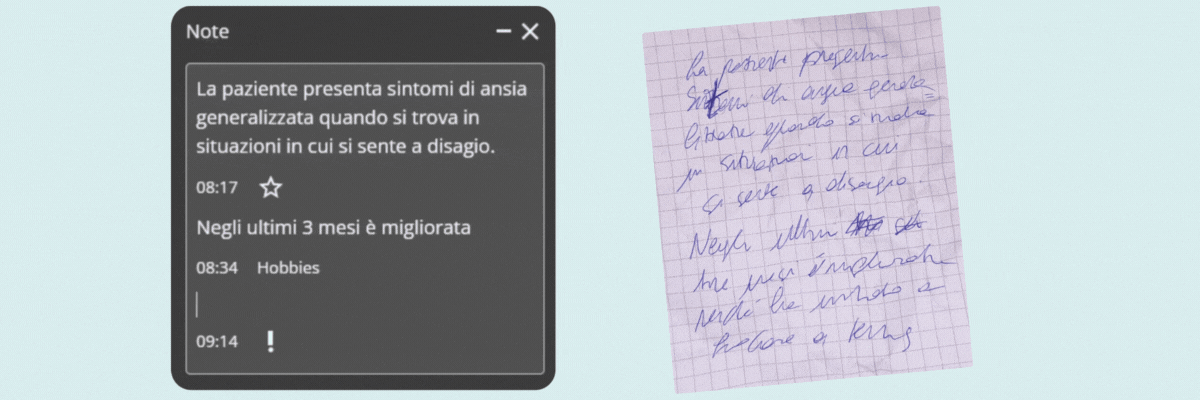 Note
La paziente presenta sintomi di ansia
generalizzata quando si trova in
situazioni in cui si sente a disagio.
08:17
Negli ultimi 3 mesi è migliorata
08:34 Hobbies
09:14 !
La paziente presenta
sintomi di ansia genera=
lizzata quando si trova
in situazioni in cui
si sente a disagio.
Negli ultimi
tre mesi è migliorata
perché ha iniziato a
giocare a tennis